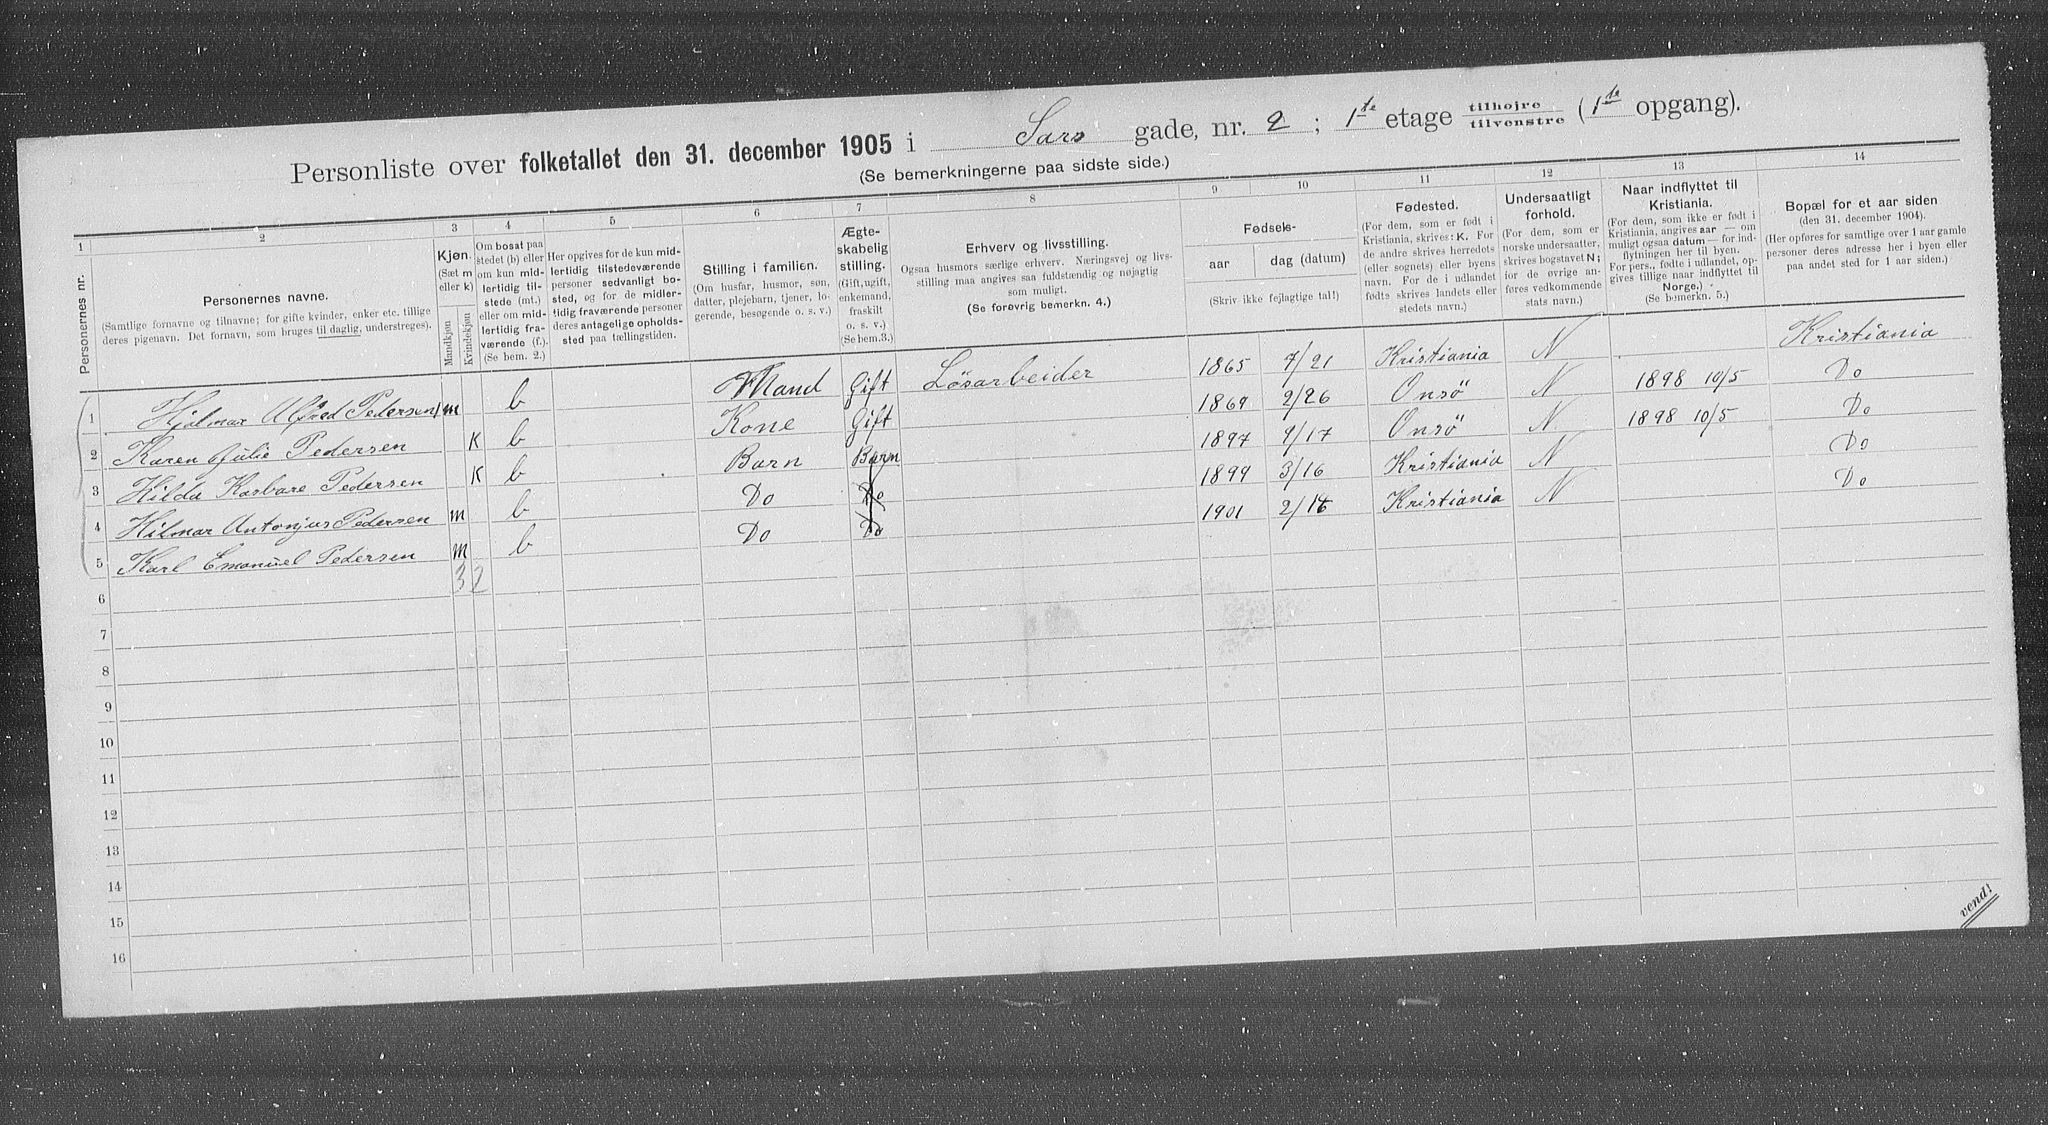 Personliste over folketallet den 31. december 1905 i Sars gade, nr. 2 ; 1ste etage tilhøjre tilvenstre (1ste opgang).
(Se bemerkningerne paa sidste side.)
1 2 3 4 5 6 7 8 9 10 11 12 13 14
Personernes nr.
Personernes navne.
(Samtlige fornavne og tilnavne; for gifte kvinder, enker etc. tillige
deres pigenavn. Det fornavn, som bruges til daglig, understreges).
Kjøn.
(Sæt m
eller k)
Mandkjøn
Kvindekjøn
Om bosat paa
stedet (b) eller
om kun mid-
lertidig tilste-
de (mt.)
eller om mid-
lertidig fra-
værende (f.).
(Se bem. 2.)
Her opgives for de kun mid-
lertidig tilstedeværende
personer sedvanligt bo-
sted, og for de midler-
tidig fraværende personer
deres antagelige opholds-
sted paa tællingstiden.
Stilling i familien.
(Om husfar, husmor, søn,
datter, plejebarn, tjener, lo-
gerende, besøgende o. s. v.)
Ægte-
skabelig
stilling.
(Gift, ugift,
enkemand,
fraskilt
o. s. v.)
(Se bem.3.)
Erhverv og livsstilling.
Ogsaa husmors særlige erhverv. Næringsvej og livs-
stilling maa angives saa fuldstændig og nøjagtig
som muligt.
(Se forøvrig bemerkn. 4.)
Fødsels-
aar dag (datum)
(Skriv ikke fejlagtige tal!)
Fødested.
(For dem, som er født i
Kristiania, skrives: K. For
de andre skrives herredets
(eller sognets) eller byens
navn. For de i udlandet
fødte skrives landets eller
stedets navn.)
Undersaatligt
forhold.
(For dem, som er
norske undersaatter,
skrives bogstavet N;
for de øvrige an-
føres vedkommende
stats navn.)
Naar indflyttet til
Kristiania.
(For dem, som ikke er født i
Kristiania, angives aar — om
muligt ogsaa datum — for ind-
flytningen her til byen.
For pers., fødte i udlandet, op-
gives tillige naar indflyttet til
Norge.)
(Se bemerkn. 5.)
Bopæl for et aar siden
(den 31. december 1904).
(Her opføres for samtlige over 1 aar gamle
personer deres adresse her i byen eller
paa andet sted for 1 aar siden.)
1 Hjalmar Alfred Pedersen m b Mand Gift Løsarbeider 1865 7/21 Kristiania N Kristiania
2 Karen Julie Pedersen K b Kone Gift 1869 2/26 Onsö N 1898 10/5 Do
3 Hilda Pedersen K b Barn Barn 1897 9/17 Onsö N 1898 10/5 Do
4 Hilmar Antonjus Pedersen m b Do Do 1899 3/16 Kristiania N Do
5 Karl Emanuel Pedersen m b Do Do 1901 Kristiania N Do
6 3 2
7
8
9
10
11
12
13
14
15
16
vend!